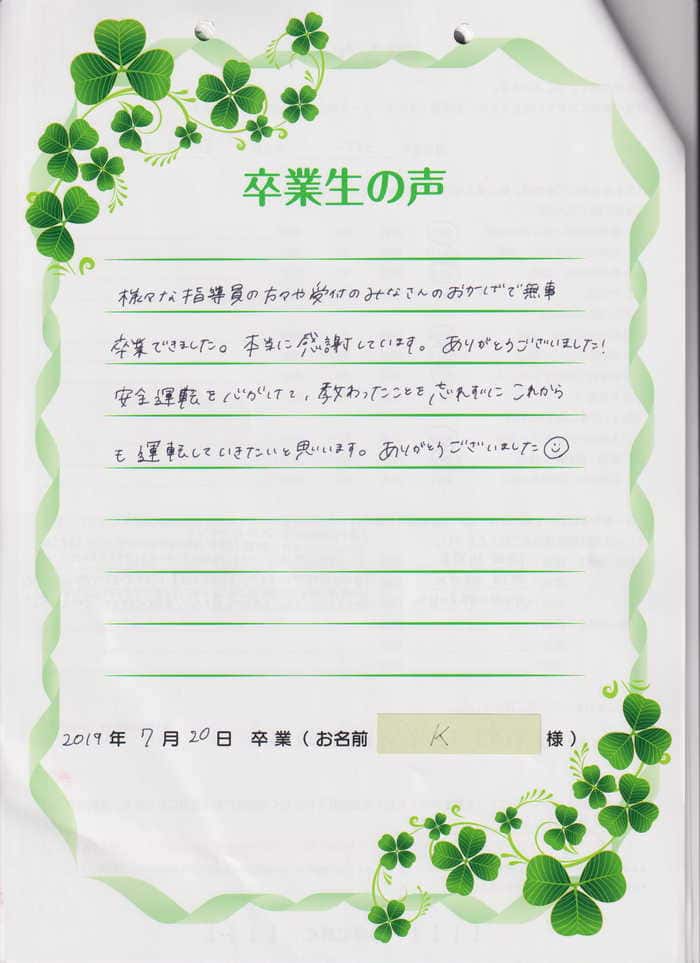 卒業生の声
様々な指導員の方々や受付のみなさんのおかげで無事
卒業できました。本当に感謝しています。ありがとうございました!
安全運転を心がけて、教わったことを忘れずにこれから
も運転していきたいと思います。ありがとうございました☺
2019年 7月20日 卒業(お名前 K 様)